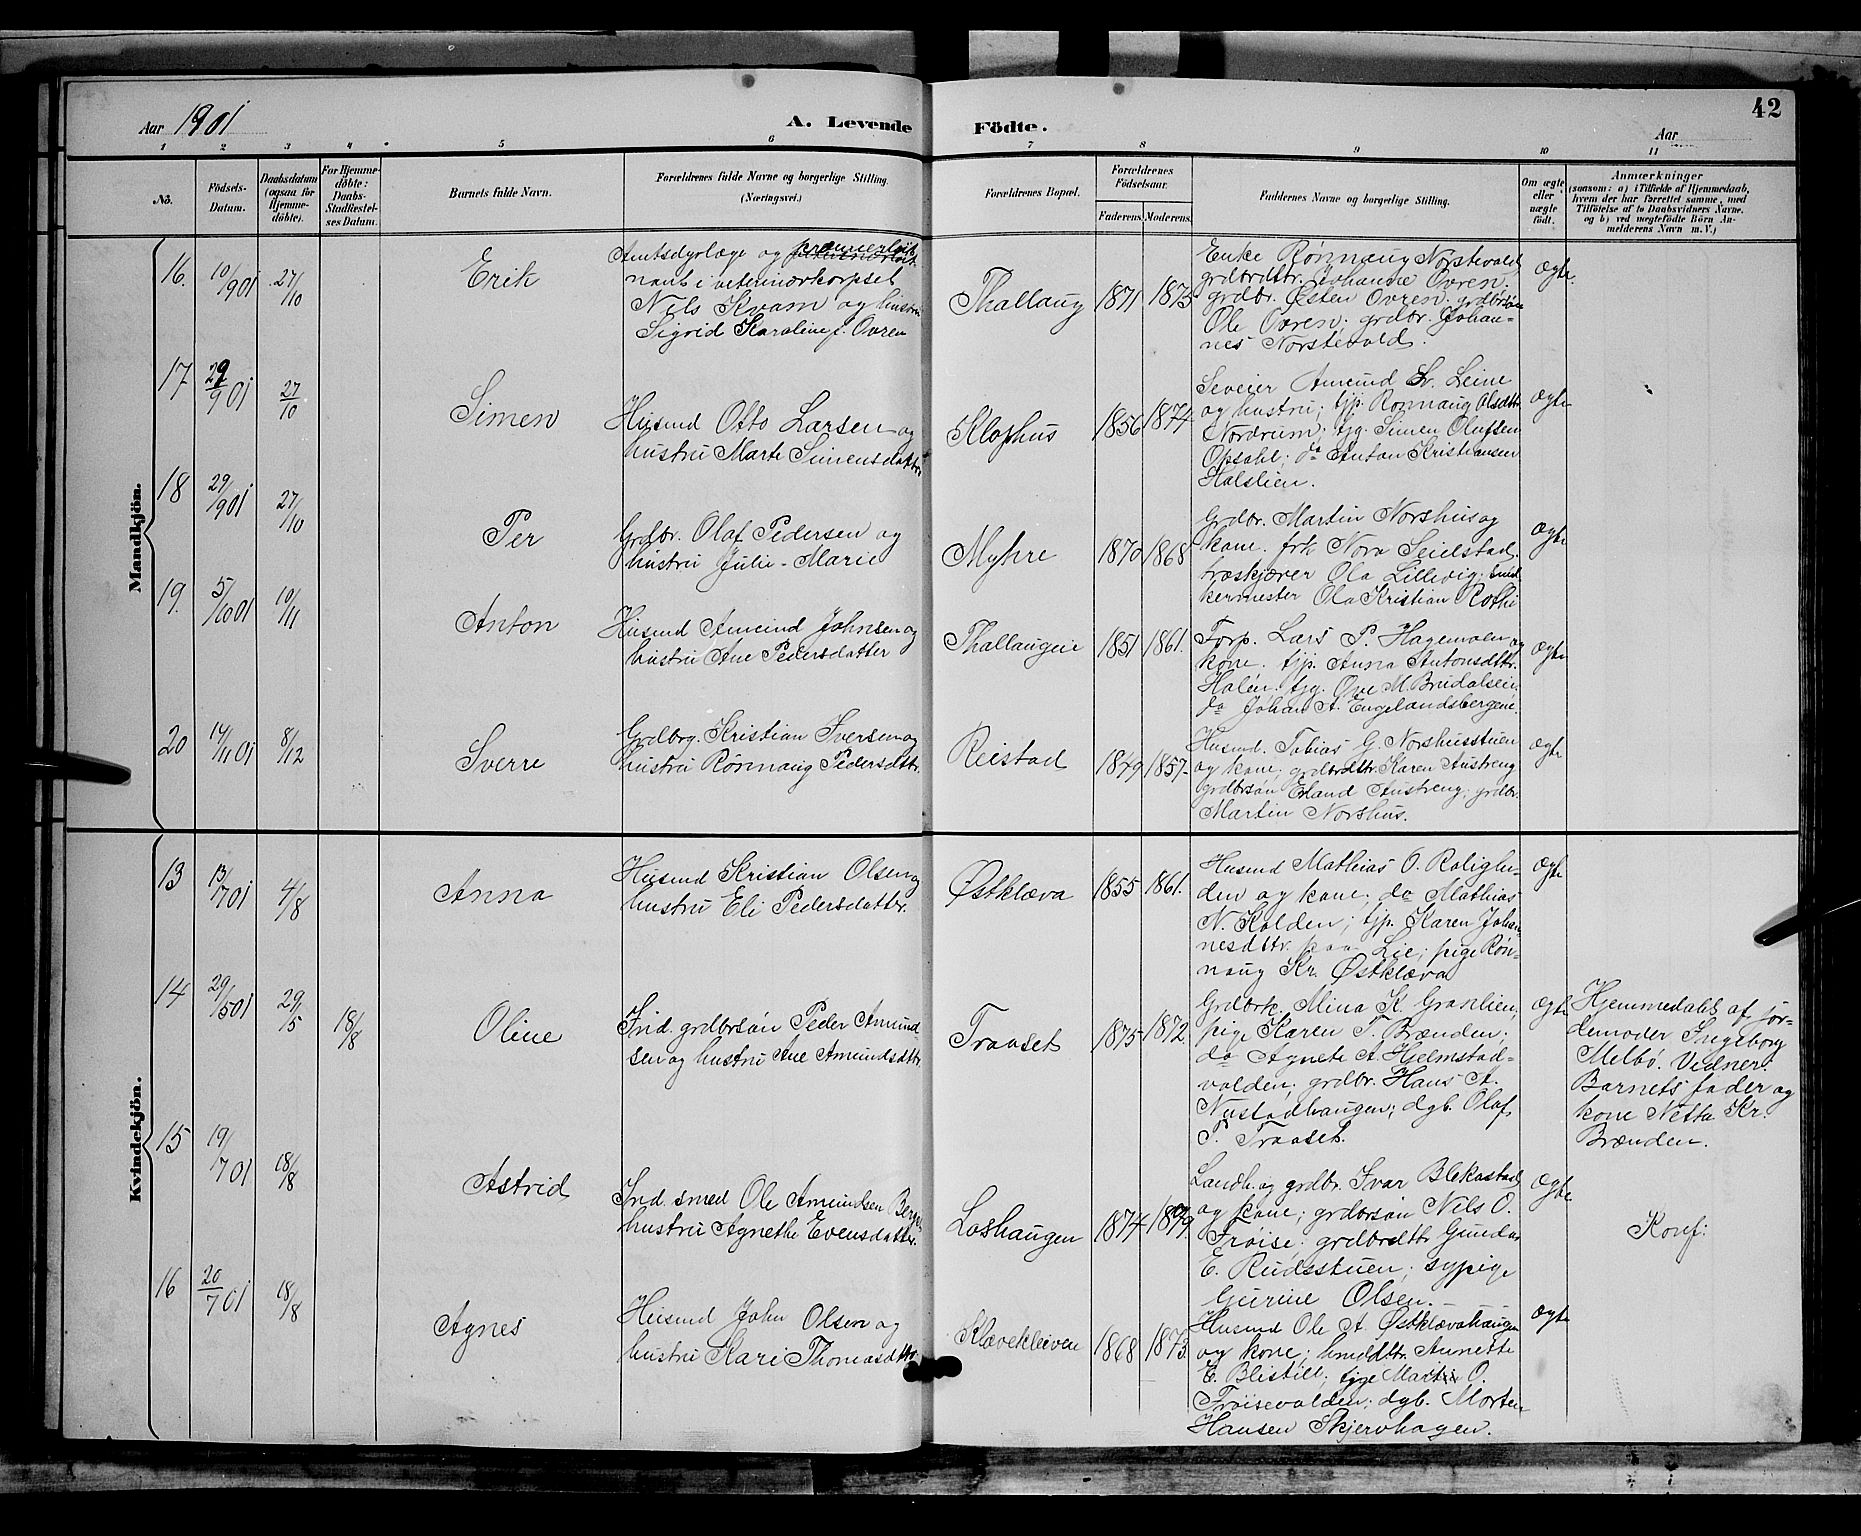 42
Aar 1901 A. Levende Födte. Aar
1 2 3 4 5 6 7 8 9 10 11
No.
Födsels-
Datum.
Daabsdatum
(ogsaa for
Hjemme-
döbte).
For Hjemme-
döbte:
Daabs-
Stadfestel-
ses Datum.
Barnets fulde Navn.
Forældrenes fulde Navne og borgerlige Stilling.
(Næringsvei.)
Forældrenes Bopæl.
Forældrenes
Födselsaar.
Faderens. Moderens.
Faddernes Navne og borgerlige Stilling.
Om ægte
eller
uægte
födt.
Anmærkninger
(saasom: a) i Tilfælde af Hjemmedaab,
hvem der har forrettet samme, med
Tilföielse af to Daabsvidners Navne,
og b) ved uægtefödte Börn An-
melderens Navn m. V.)
Mandkjön.
16. 10/901 27/10 Erik
Amtsdyrlæge og premierlöit
nant i veterinærkorpset
Nils Kvam og hustru
Sigrid Karoline f. Ovren
Thallaug 1871 1875
Enke Rønnaug Norstevold
grdbrdttr. Johanne Ovren;
grdbr. Østen Ovren; grdbrsøn
Ole Ovren; grdbr. Johan-
nes Norstevold.
Ægte
17 29/901 27/10 Simen
Husmd Otto Larsen og
hustru Marte Simensdatter
Klophus 1856 1874
Amund Leine
og hustru; tjp. Rønnaug Olsdttr
Nordrum; tjg. Simen Olufsen
Opsahl; do Anton Kristiansen
Halslien.
Ægte
18 29/901 27/10 Per
Grdbr. Olaf Pedersen og
hustru Julie-Marie
Myhre 1870 1868
Grdbr. Martin Norshus og
kone. frk Nora Seielstad
træskjærer Ola Lillevig;
Ola Kristian
Ægte
19. 5/1001 10/11 Anton
Husmd Amund Johnsen og
hustru Ane Pedersdatter
Thallaugeie 1851 1861.
Lars P. Hagemoen og
kone. tjp. Anna Antonsdttr.
tjg. Ove M.
do Johan A. Engelandsbergene.
Ægte
20 14/1101 8/12 Sverre
Grdbrg. Kristian Iversen og
hustru Rønnaug Pedersdttr.
Reistad 1849 1857.
Husmd. Tobias G. Norshusstuen
og kone; grdbrdttr. Karen Austreng
grdbrsøn Erland Austreng; grdbr.
Martin Norshus.
Ægte
Kvindekjön.
13 13/701 4/8 Anna
Husmd Kristian Olsen og
hustru Eli Pedersdatter.
Østklæva 1855 1861.
Husmd Mathias O. Roligh-
den og kone; do Mathias
N. Kolden; tjp. Karen Johan-
nesdttr. paa Lie; pige Røn-
naug Kr. Østklæva
Ægte
14 29/501 29/5 18/8 Oline
Ind. grdbrsøn Peder Amund-
sen og hustru Ane Amundsdttr.
Traaset 1875 1872.
Grdbrk. Mina K. Graslien;
pige Karen T. Brænden;
do Agnete A. Hjelmstad-
volden; grdbr. Hans A.
Nustadhaugen; dgb. Olaf
P. Traaset.
Ægte
Hjemmedøbt af jor-
demoder Ingeborg
Melbö. Vidner.
Barnets fader og
kone Netta Kr.
Brænden.
15 19/701 18/8 Astrid
Ind. smed Ole Amundsen Berg
hustru Agnethe Evensdatter.
Loshaugen 1874
Landh. og grdbr. Ivar Blekastad
og kone; grdbrsøn Nils O.
Frøise; grdbrdttr Gunda
E. Rudsstuen; sypige
Gurine Olsen.
Ægte
Konf:
16 20/701 18/8 Agnes
Husmd John Olsen og
hustru Kari Thomasdttr.
Klævekleiven 1868 1873
Husmd Ole A. Østklævahaugen
og kone; Annette
E. Blistill; O.
Frøisevolden; dgb. Morten
Hansen Skjervhagen.
Ægte